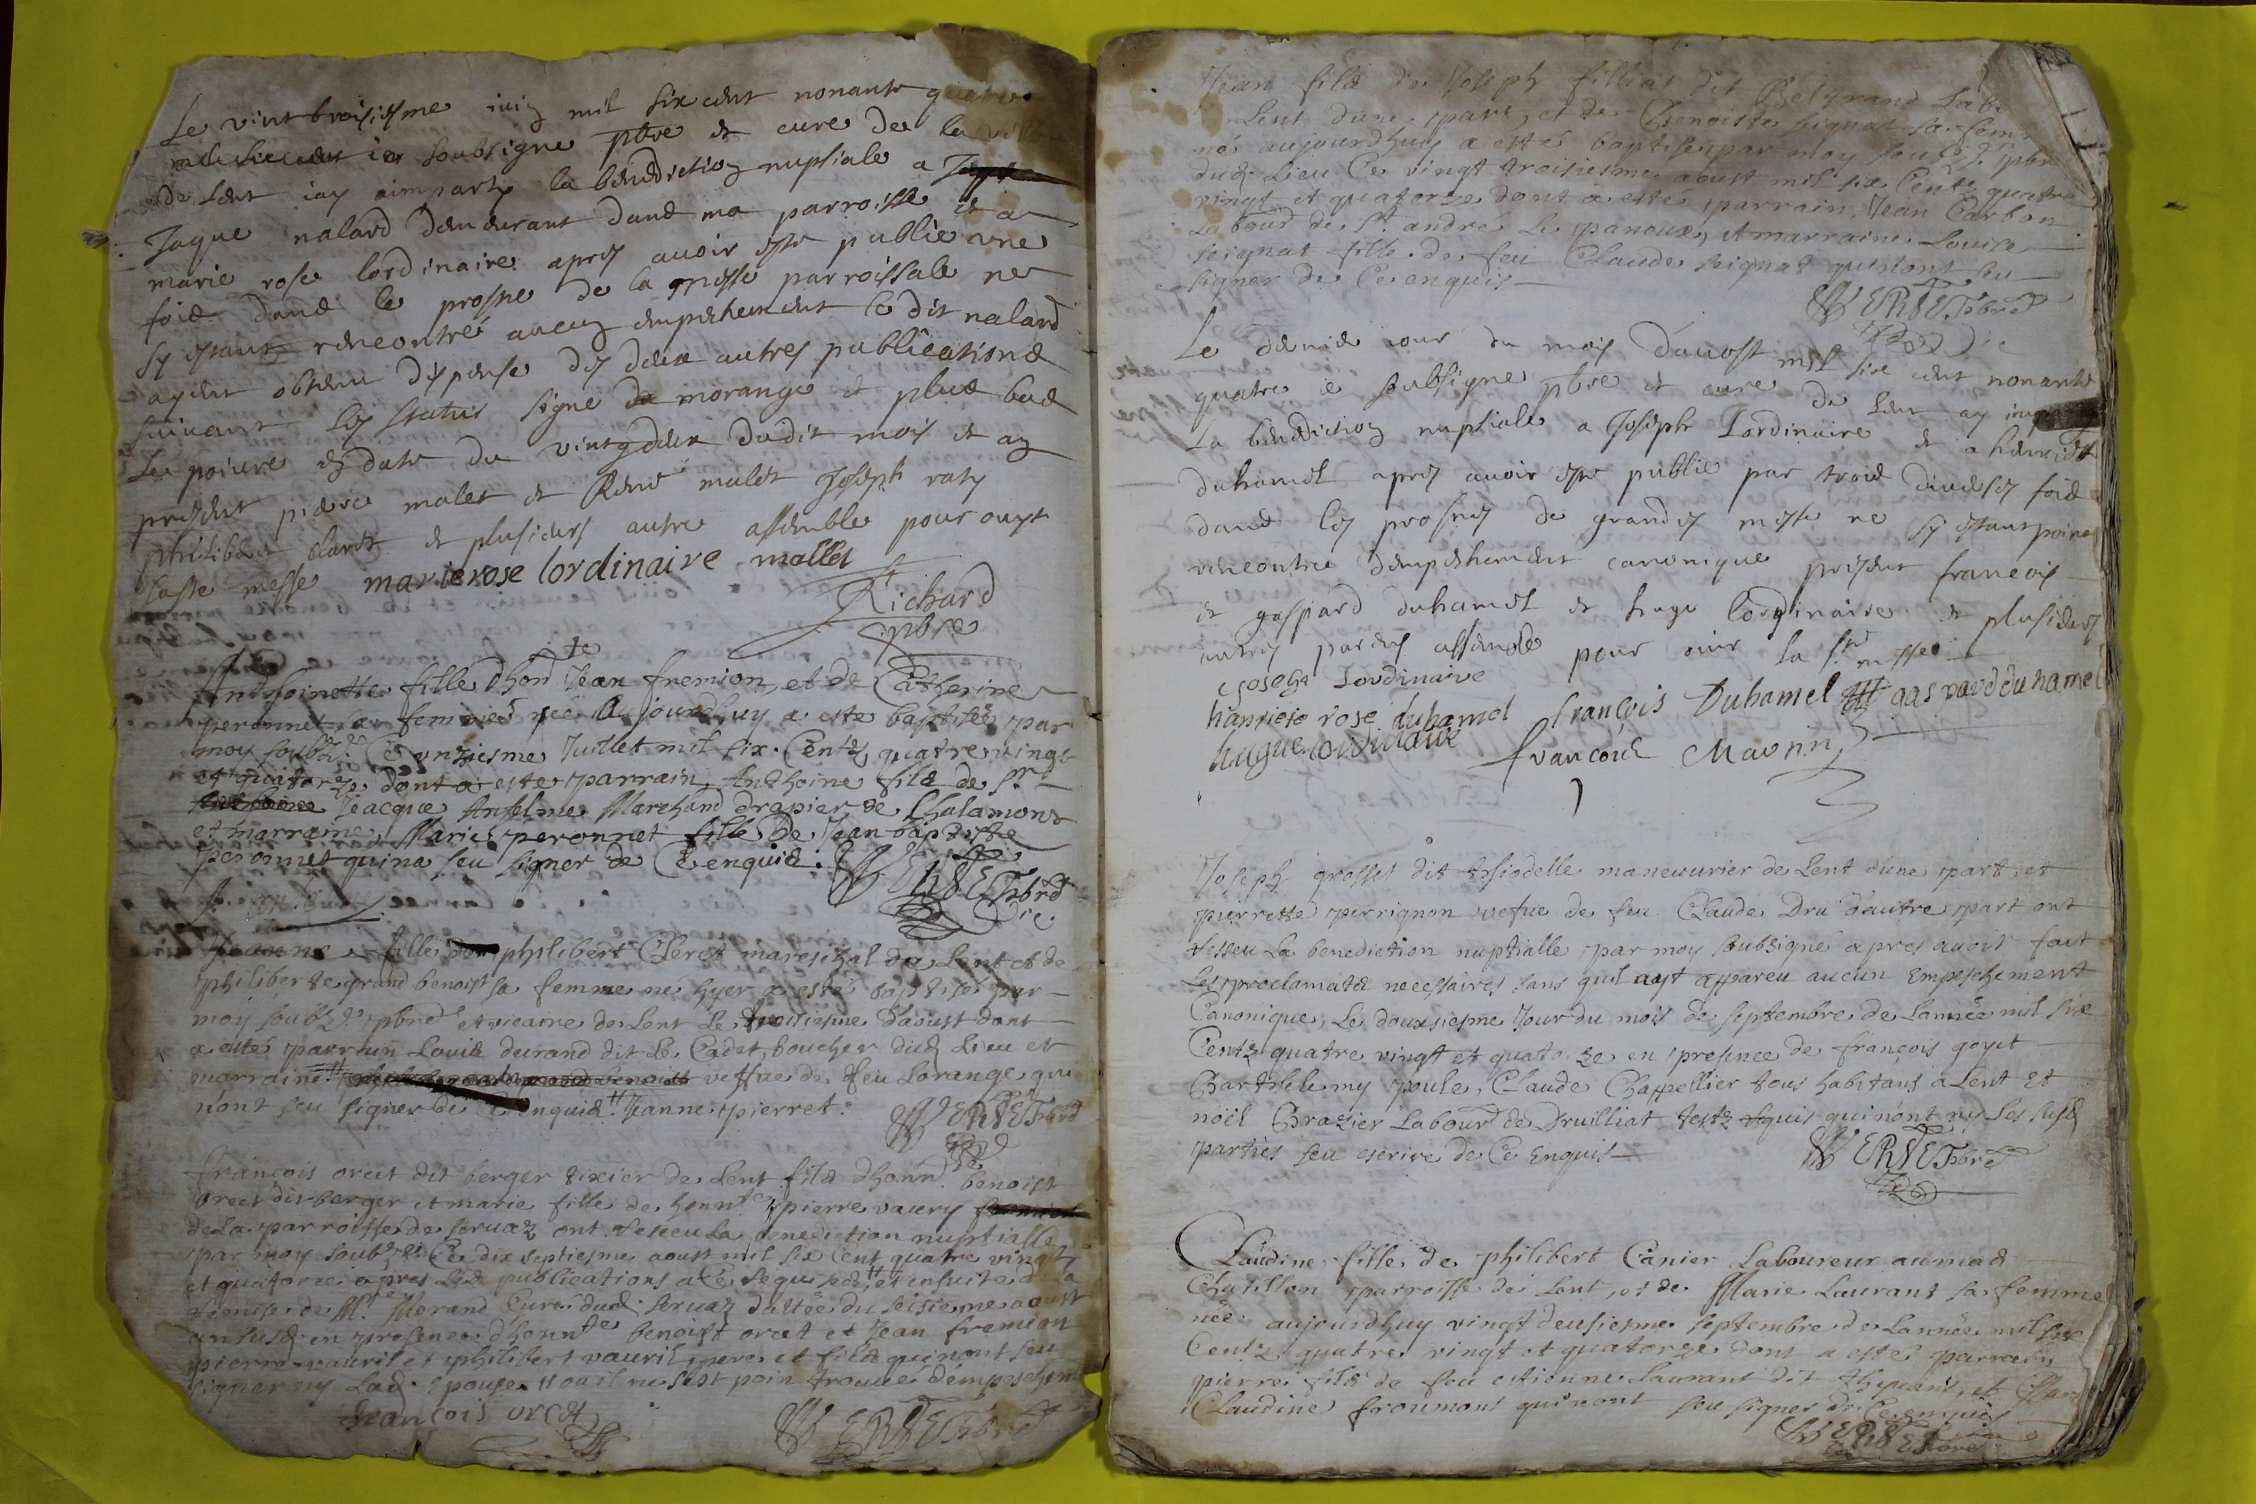 Le vint troisiesme iuin mil six cent nonante quatre
ie soubsigne pbre et cure de la ville
de Lent iay imparty la benediction nuptiale a
Jaque nalard demeurant dans ma parroisse et a
marie rose lordinaire apres avoir este publie une
fois dans le prosne de la messe parroissale ne
sy estant rencontré aucun empechement le dit nalard
ayent obtenu dispense des deux autres publications
suivant les statuts signe de morange et plus bas
Le poivre en date du vintgdeux dudit mois et an
present pierre malet et René malet Joseph raty
philibert claret et plusieurs autre assemble pour ouyr
la ste messe marie rose lordinaire mallet
Richard
pbre
Anthoinette fille dhonte Jean fremion et de Catherine
peronnet sa femme née Aujourdhuy a este baptisée par
moy soubzné Ce unziesme Juillet mil six Centz quatre vingt
et quatorze dont a este parrain Anthoine fils de Sr
Jeacque Anselme Marchand drapier de Chalamont
et marraine Marie peronnet fille de Jean baptiste
peronnet qui na seu signer de Ce enquis.
VERNET pbre
Jeanne fille de philibert Cleret mareschal de Lent et de
philiberte grand benoist sa femme ne hyer a esté baptisé par
moy soubzné pbre et vicaire de Lent Le troisiesme d'aoust dont
a estés parrain Louis durand dit Le Cadet boucher dud Lieu et
marraine veffve de feu Lorange qui
n'ont seu signer de Ce enquis Jeanne pierret.
VERNET pbre
françois orcet dit berger tixier de Lent fils dhonn. benoist
orcet dit berger et marie fille de honnte pierre vaury
de La parroisse de servaz ont Receu La benediction nuptialle
par moy soubzné Ce dix septiesme aoust mil six Cent quatre vingtz
et quatorze apres Les publications a Ce requises et ensuite a La
remise de Mr Morand Curé dud servaz dattée du seisieme aoust
an susd en presence dhonnte benoist orcet et Jean fremion
pierre vauril et philibert vauril pere et fils qui n'ont seu
signer ny Lad. Epouse ou il ne sest poin trouvé dempeschem
francois orcet
VERNET pbre
Jean fils de Joseph filliat dit Belgrand Lab
Lent dune part, et de Benoiste signat sa fem
né aujourdhuy a estés baptisé par moy soubsné pbre
dud. Lieu Ce vingt troisiesme aoust mil six Centz quatre
vingt et quatorze dont a estés parrain Jean Carbon
Labour de St andré Le panoux, et marraine Louise
seignat fille de feu Claude seignat qui n'ont seu
signer de Ce enquis
VERNET pbre
Le dernie iour du mois d'auost mil six cent nonante
quatre ie soubsigne pbre et cure de Lent ay imp
La benediction nuptiale a Joseph Lordinaire et a henriette
duhamel apres avoir este publie par trois diverses fois
dans les prosnes de grandes messe ne sy estant point
rencontre dempechement canonique present francois
et gaspard duhamel et hugue lordinaire et plusieurs
autres parens assemble pour ouir la ste messe
Joseph Lordinaire
hanriete rose duhamel francois Duhamel gaspard duhamel
hugue lordinaire francois Maurin
Joseph grosset dit manevurier de Lent dune part, et
pierrette perrignon vefve de feu Claude Dru d'autre part ont
Resseu La benediction nuptialle par moy soubsigné apres avoir fait
Les proclamats necessaires sans quil ayt appareu aucun Empeschement
Canonique, Le douxsiesme Jour du mois de septembre de Lannée mil six
Centz quatre vingt et quatorze en presence de françois goyet
Barthelemy poule, Claude Chappellier tous habitans a Lent Et
noël Brazier Labourr de Druilliat testz requis qui n'ont ny Les susd
parties seu escrire de Ce Enquis
VERNET pbre
Claudine fille de philibert Canier Laboureur au mas
Chatillon parroisse de Lent, et de Marie Laurant sa femme
née aujourdhuy vingt deusiesme septembre de Lannée mil six
Centz quatre vingt et quatorze dont a estés parrain
pierre fils de feu estienne Laurant dit et
Claudine froumont qui n'ont seu signer de Ce enquis
VERNET pbre